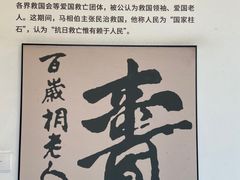 各界救国会等爱国救亡团体，被公认为救国领袖、爱国老
人。这期间，马相伯主张民治救国，他称人民为“国家柱
石”，认为“抗日救亡惟有赖于人民”。
壽
百歲相老人